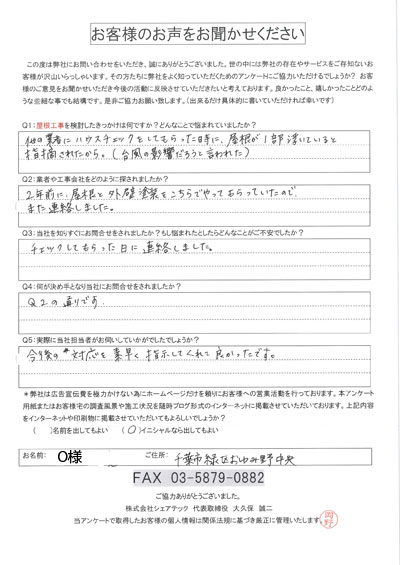 お客様のお声をお聞かせください
この度は弊社にお問い合わせをいただき、誠にありがとうございました。世の中には弊社の存在やサービスをご存知ないお
客様が沢山いらっしゃいます。その方たちに弊社をよく知っていただくためのアンケートにご協力いただけるでしょうか？ お客
様のご意見をお聞かせいただき今後の活動に反映させていただきたいと考えております。良かったこと、嬉しかったことどのよ
うな些細な事でも結構です。是非ご協力お願い致します。（出来るだけ具体的に書いていただければ幸いです）
Q1：屋根工事を検討したきっかけは何ですか？どんなことで悩まれていましたか？
他の業者にハウスチェックをしてもらった時に、屋根が1部浮いていると
指摘されたから。（台風の影響だろうと言われた）
Q2：業者や工事会社をどのように探されましたか？
2年前に、屋根と外壁塗装をこちらでやってもらっていたので
また連絡しました。
Q3：当社を知りすぐにお問合せをされましたか？もし悩まれたとしたらどんなことがご不安でしたか？
チェックしてもらった日に連絡しました。
Q4：何が決め手となり当社にお問合せをされましたか？
Q2の通りです。
Q5：実際に当社担当者がお伺いしていかがでしたでしょうか？
今後の対応を素早く指示してくれて良かったです。
＊弊社は広告宣伝費を極力かけない為にホームページだけを頼りにお客様への営業活動を行っております。本アンケート
用紙またはお客様宅の調査風景や施工状況を随時ブログ形式のインターネットに掲載させていただいております。上記内容
をインターネットや印刷物に掲載させていただいてもよろしいでしょうか？
（　）名前を出してもよい　（○）イニシャルなら出してもよい
お名前： O様　ご住所： 千葉市緑区おゆみ野中央
FAX 03-5879-0882
ご協力ありがとうございました。
株式会社シェアテック 代表取締役 大久保 誠二
当アンケートで取得したお客様の個人情報は関係法規に基づき厳正に管理いたします。